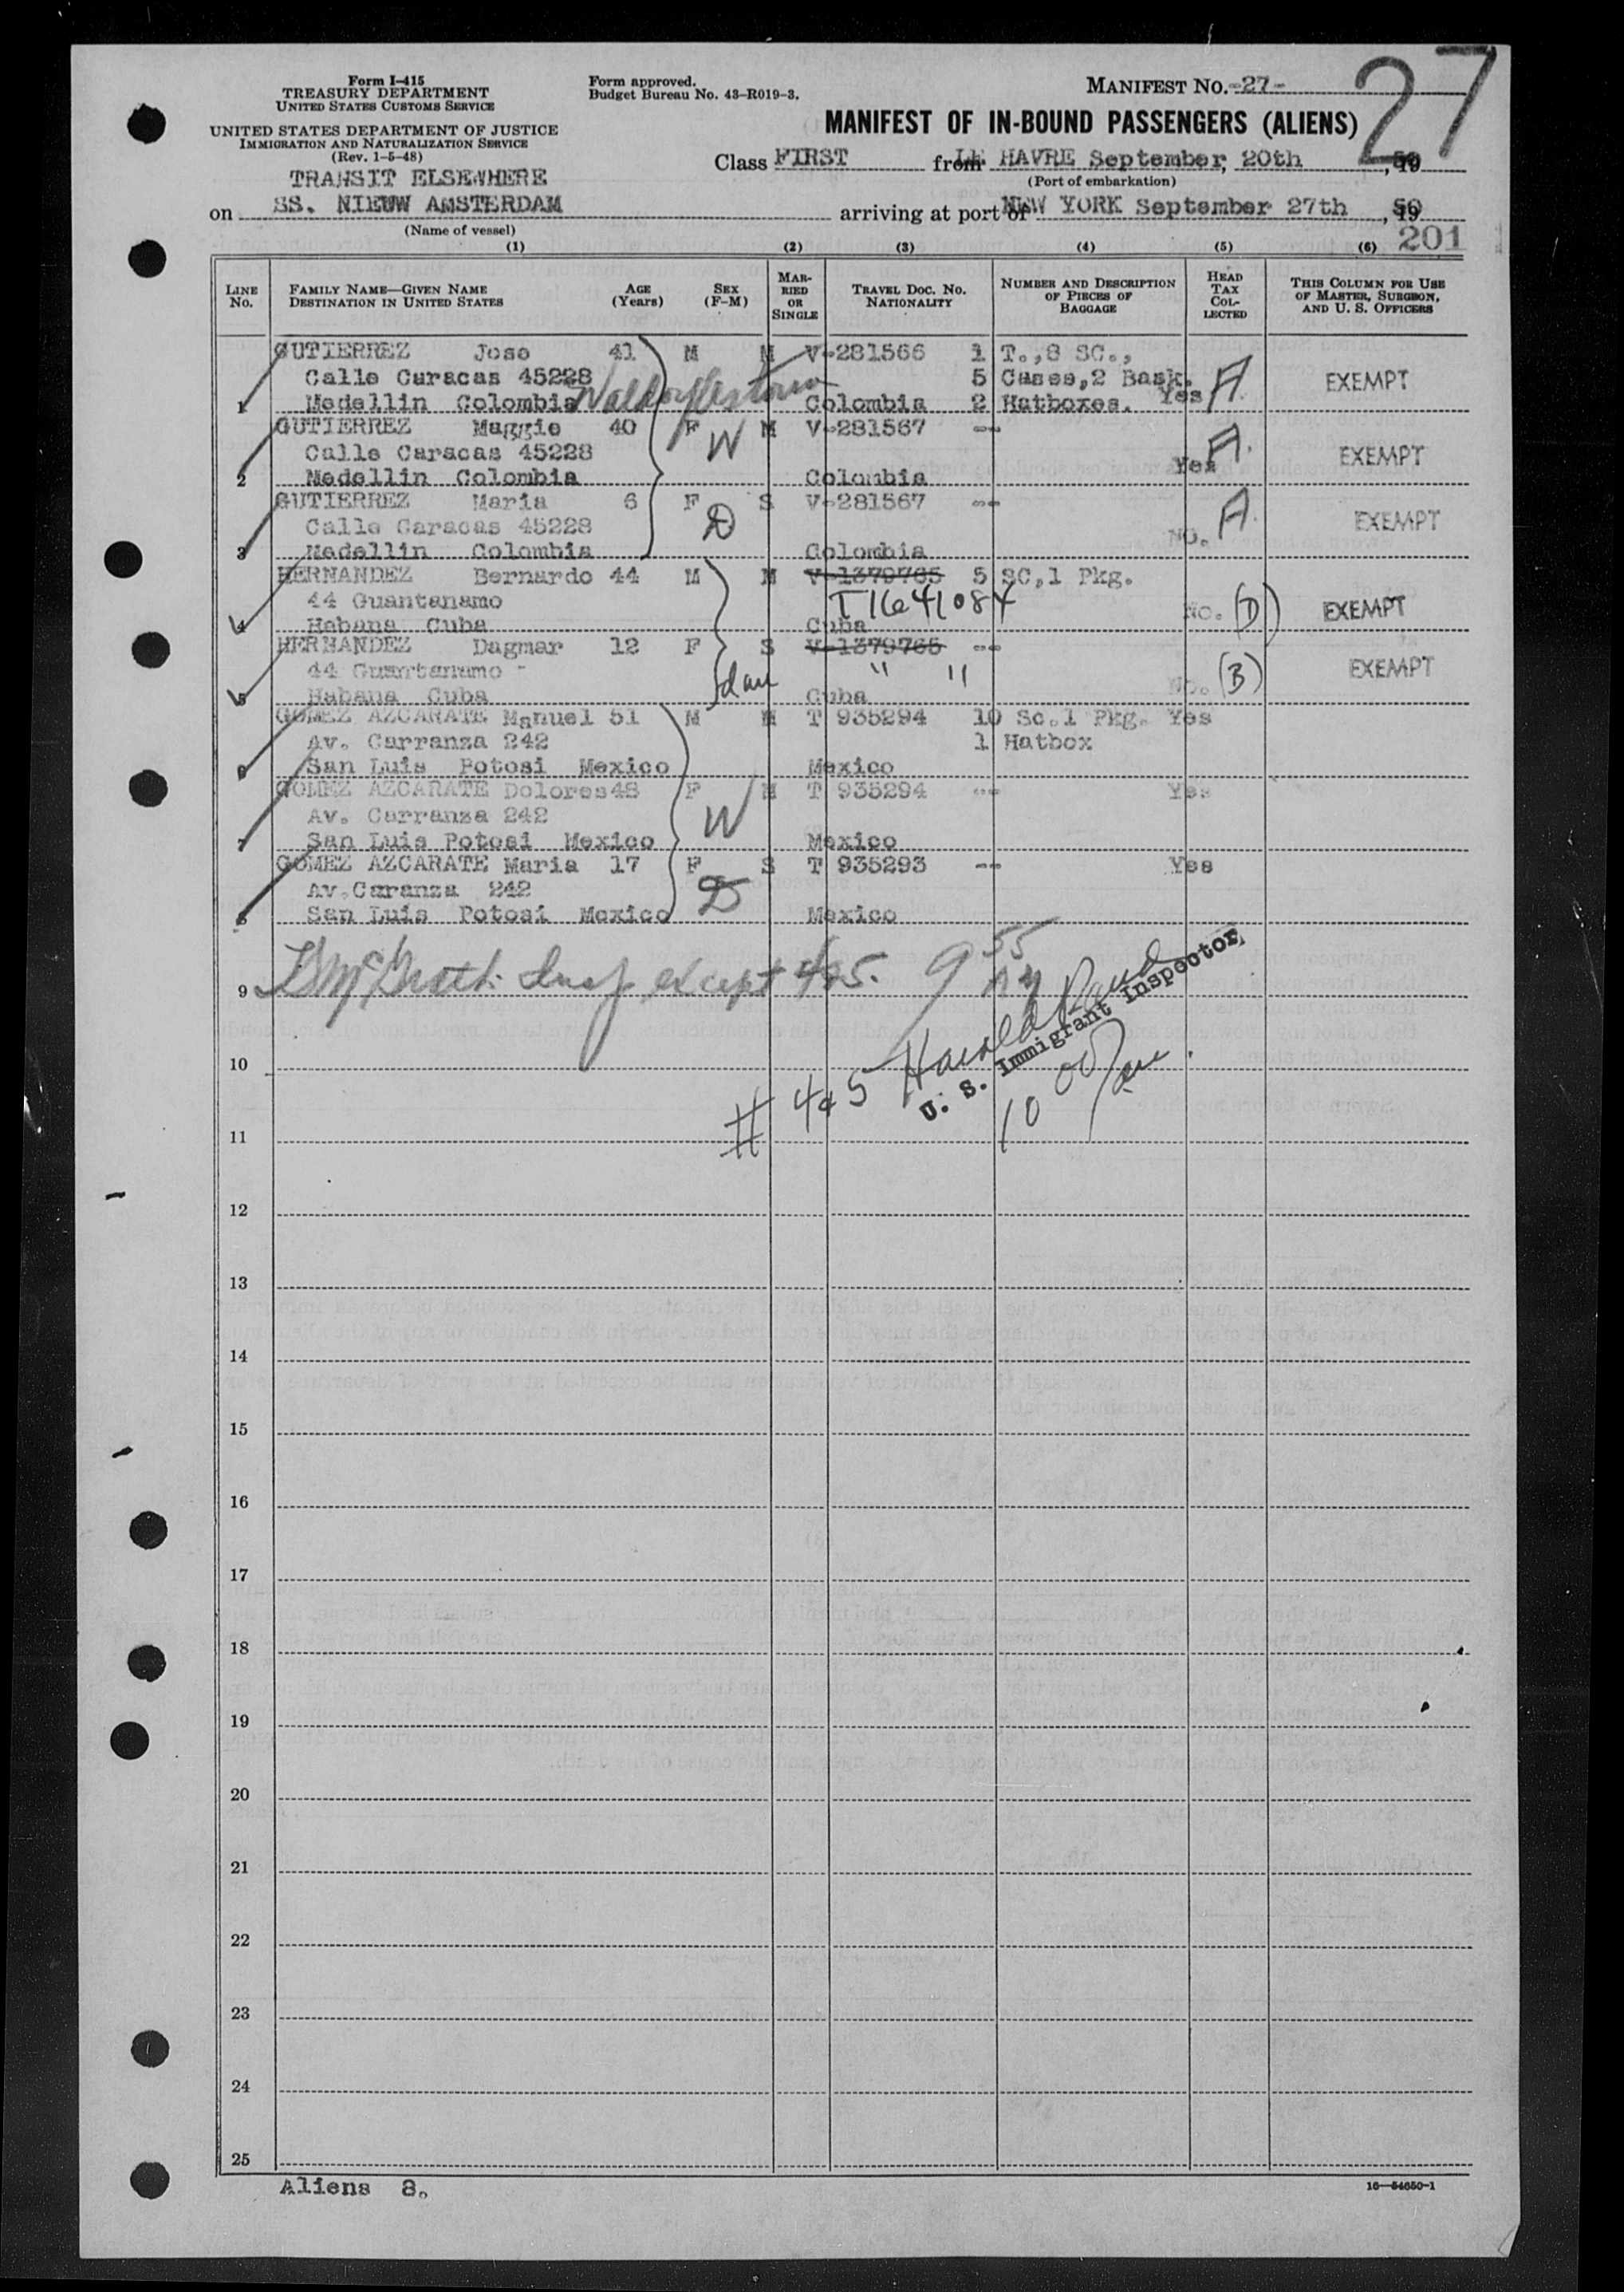 Form I-415
TREASURY DEPARTMENT
UNITED STATES CUSTOMS SERVICE
UNITED STATES DEPARTMENT OF JUSTICE
IMMIGRATION AND NATURALIZATION SERVICE
(Rev. 1-5-48)
Form approved.
Budget Bureau No. 43-R019-3.
MANIFEST NO. -27-
27
MANIFEST OF IN-BOUND PASSENGERS (ALIENS)
Class FIRST from LE HAVRE September, 20th, 1950
(Port of embarkation)
TRANSIT ELSEWHERE
on SS. NIEUW AMSTERDAM arriving at port of NEW YORK September 27th, 1950
(Name of vessel)
201
(1) (2) (3) (4) (5) (6)
LINE No. FAMILY NAME—GIVEN NAME DESTINATION IN UNITED STATES AGE (Years) SEX (F-M) MARRIED OR SINGLE TRAVEL DOC. NO. NATIONALITY NUMBER AND DESCRIPTION OF PIECES OF BAGGAGE HEAD TAX COLLECTED THIS COLUMN FOR USE OF MASTER, SURGEON, AND U. S. OFFICERS
GUTIERREZ Jose 41 M M V-281566 1 T.,8 SC.,
Calle Caracas 45228 5 Cases,2 Bask. A EXEMPT
1 Medellin Colombia Colombia 2 Hatboxes. Yes
GUTIERREZ Maggie 40 F M V-281567 --
Calle Caracas 45228 W A. EXEMPT
2 Medellin Colombia Colombia Yes
GUTIERREZ Maria 6 F S V-281567 --
Calle Caracas 45228 D A. EXEMPT
3 Medellin Colombia Colombia No.
HERNANDEZ Bernardo 44 M M V-1379765 5 SC,1 Pkg.
44 Guantanamo T1641084 No. (D) EXEMPT
4 Habana Cuba Cuba
HERNANDEZ Dagmar 12 F S V-1379765 --
44 Guantanamo - " " No. (B) EXEMPT
5 Habana Cuba dau Cuba
GOMEZ AZCARATE Manuel 51 M M T 935294 10 Sc.1 Pkg. Yes
Av. Carranza 242 1 Hatbox
6 San Luis Potosi Mexico Mexico
GOMEZ AZCARATE Dolores 48 F M T 935294 -- Yes
Av. Carranza 242 W
7 San Luis Potosi Mexico Mexico
GOMEZ AZCARATE Maria 17 F S T 935293 -- Yes
Av.Caranza 242 D
8 San Luis Potosi Mexico Mexico
9 McGrath Insp except 4+5. 9 55
Harold
U. S. Immigrant Inspector
10
# 4+5 10 00
11
12
13
14
15
16
17
18
19
20
21
22
23
24
25
Aliens 8.
16-54650-1